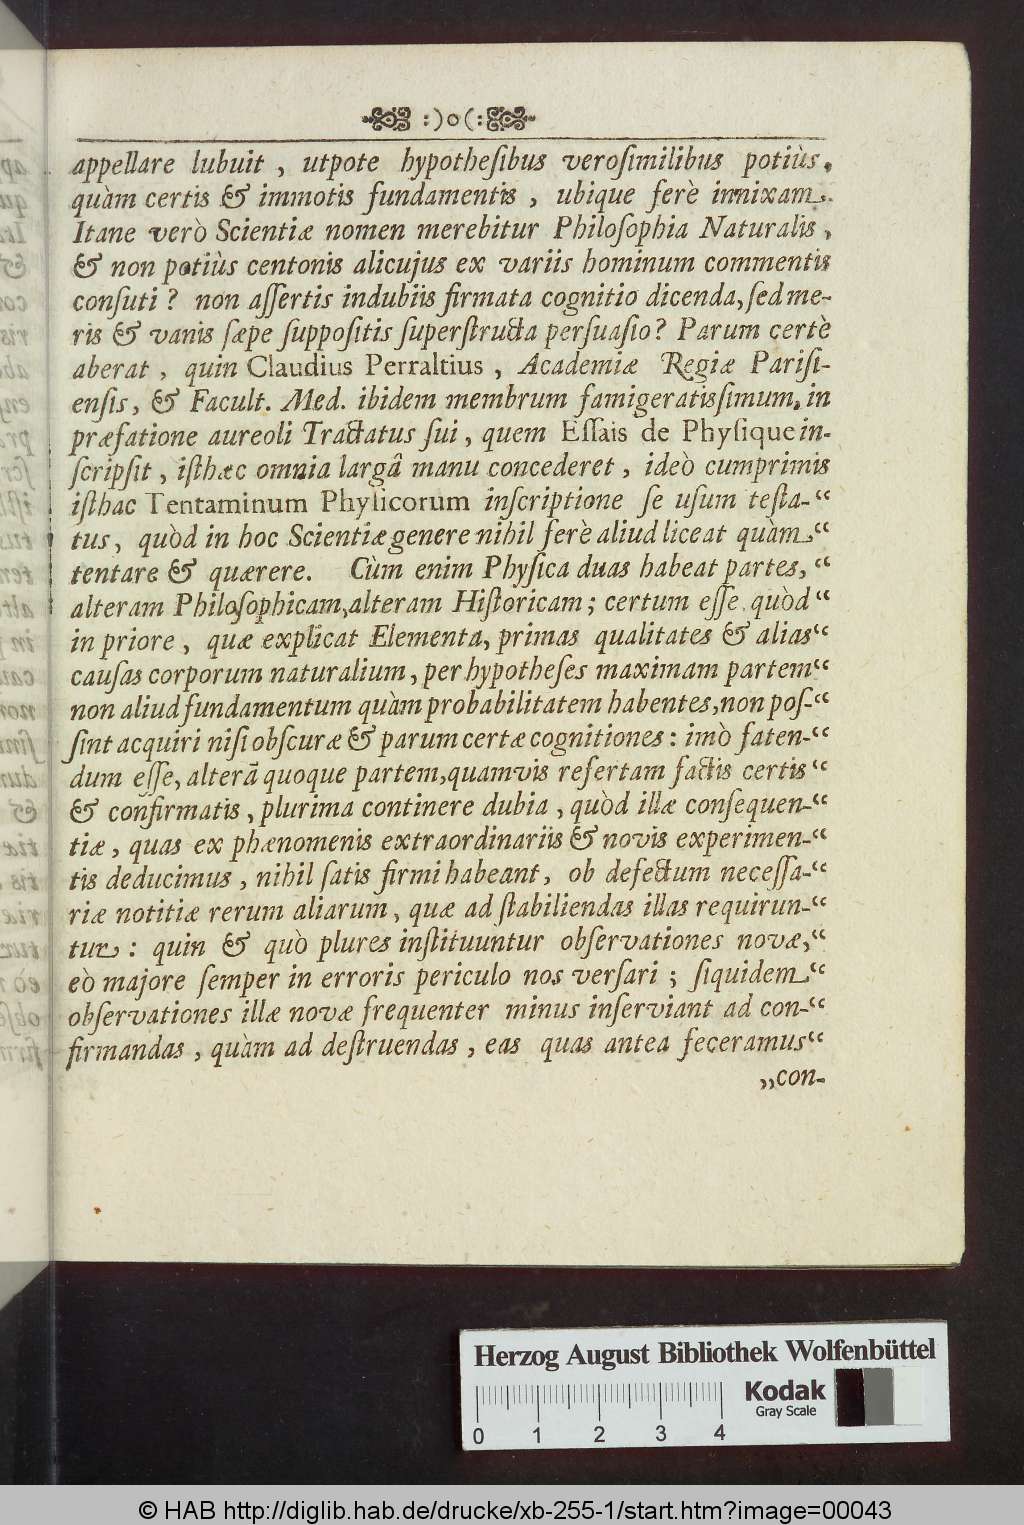 :)o(:
appellare lubuit, utpote hypotheſibus veroſimilibus potiùs,
quàm certis & immotis fundamentis, ubique ferè innixam.
Itane verò Scientiæ nomen merebitur Philoſophia Naturalis,
& non potiùs centonis alicujus ex variis hominum commentis
conſuti? non aſſertis indubiis firmata cognitio dicenda, ſed me-
ris & vanis ſæpe ſuppoſitis ſuperſtructa perſuaſio? Parum certè
aberat, quin Claudius Perraltius, Academiæ Regiæ Pariſi-
enſis, & Facult. Med. ibidem membrum famigeratisſimum, in
præfatione aureoli Tractatus ſui, quem Eſſais de Phyſique in-
ſcripſit, iſthæc omnia largâ manu concederet, ideò cumprimis
iſthac Tentaminum Phyſicorum inſcriptione ſe uſum teſta-“
tus, quòd in hoc Scientiæ genere nihil ferè aliud liceat quàm“
tentare & quærere. Cùm enim Phyſica duas habeat partes,“
alteram Philoſophicam, alteram Hiſtoricam; certum eſſe, quòd“
in priore, quæ explicat Elementa, primas qualitates & alias“
cauſas corporum naturalium, per hypotheſes maximam partem“
non aliud fundamentum quàm probabilitatem habentes, non poſ-“
ſint acquiri niſi obſcuræ & parum certæ cognitiones: imò faten-“
dum eſſe, alterã quoque partem, quamvis refertam factis certis“
& confirmatis, plurima continere dubia, quòd illæ conſequen-“
tiæ, quas ex phænomenis extraordinariis & novis experimen-“
tis deducimus, nihil ſatis firmi habeant, ob defectum neceſſa-“
riæ notitiæ rerum aliarum, quæ ad ſtabiliendas illas requirun-“
tur: quin & quò plures inſtituuntur obſervationes novæ,“
eò majore ſemper in erroris periculo nos verſari; ſiquidem“
obſervationes illæ novæ frequenter minus inſerviant ad con-“
firmandas, quàm ad deſtruendas, eas quas antea feceramus“
„con-
Herzog August Bibliothek Wolfenbüttel
Kodak
Gray Scale
0 1 2 3 4
© HAB http://diglib.hab.de/drucke/xb-255-1/start.htm?image=00043